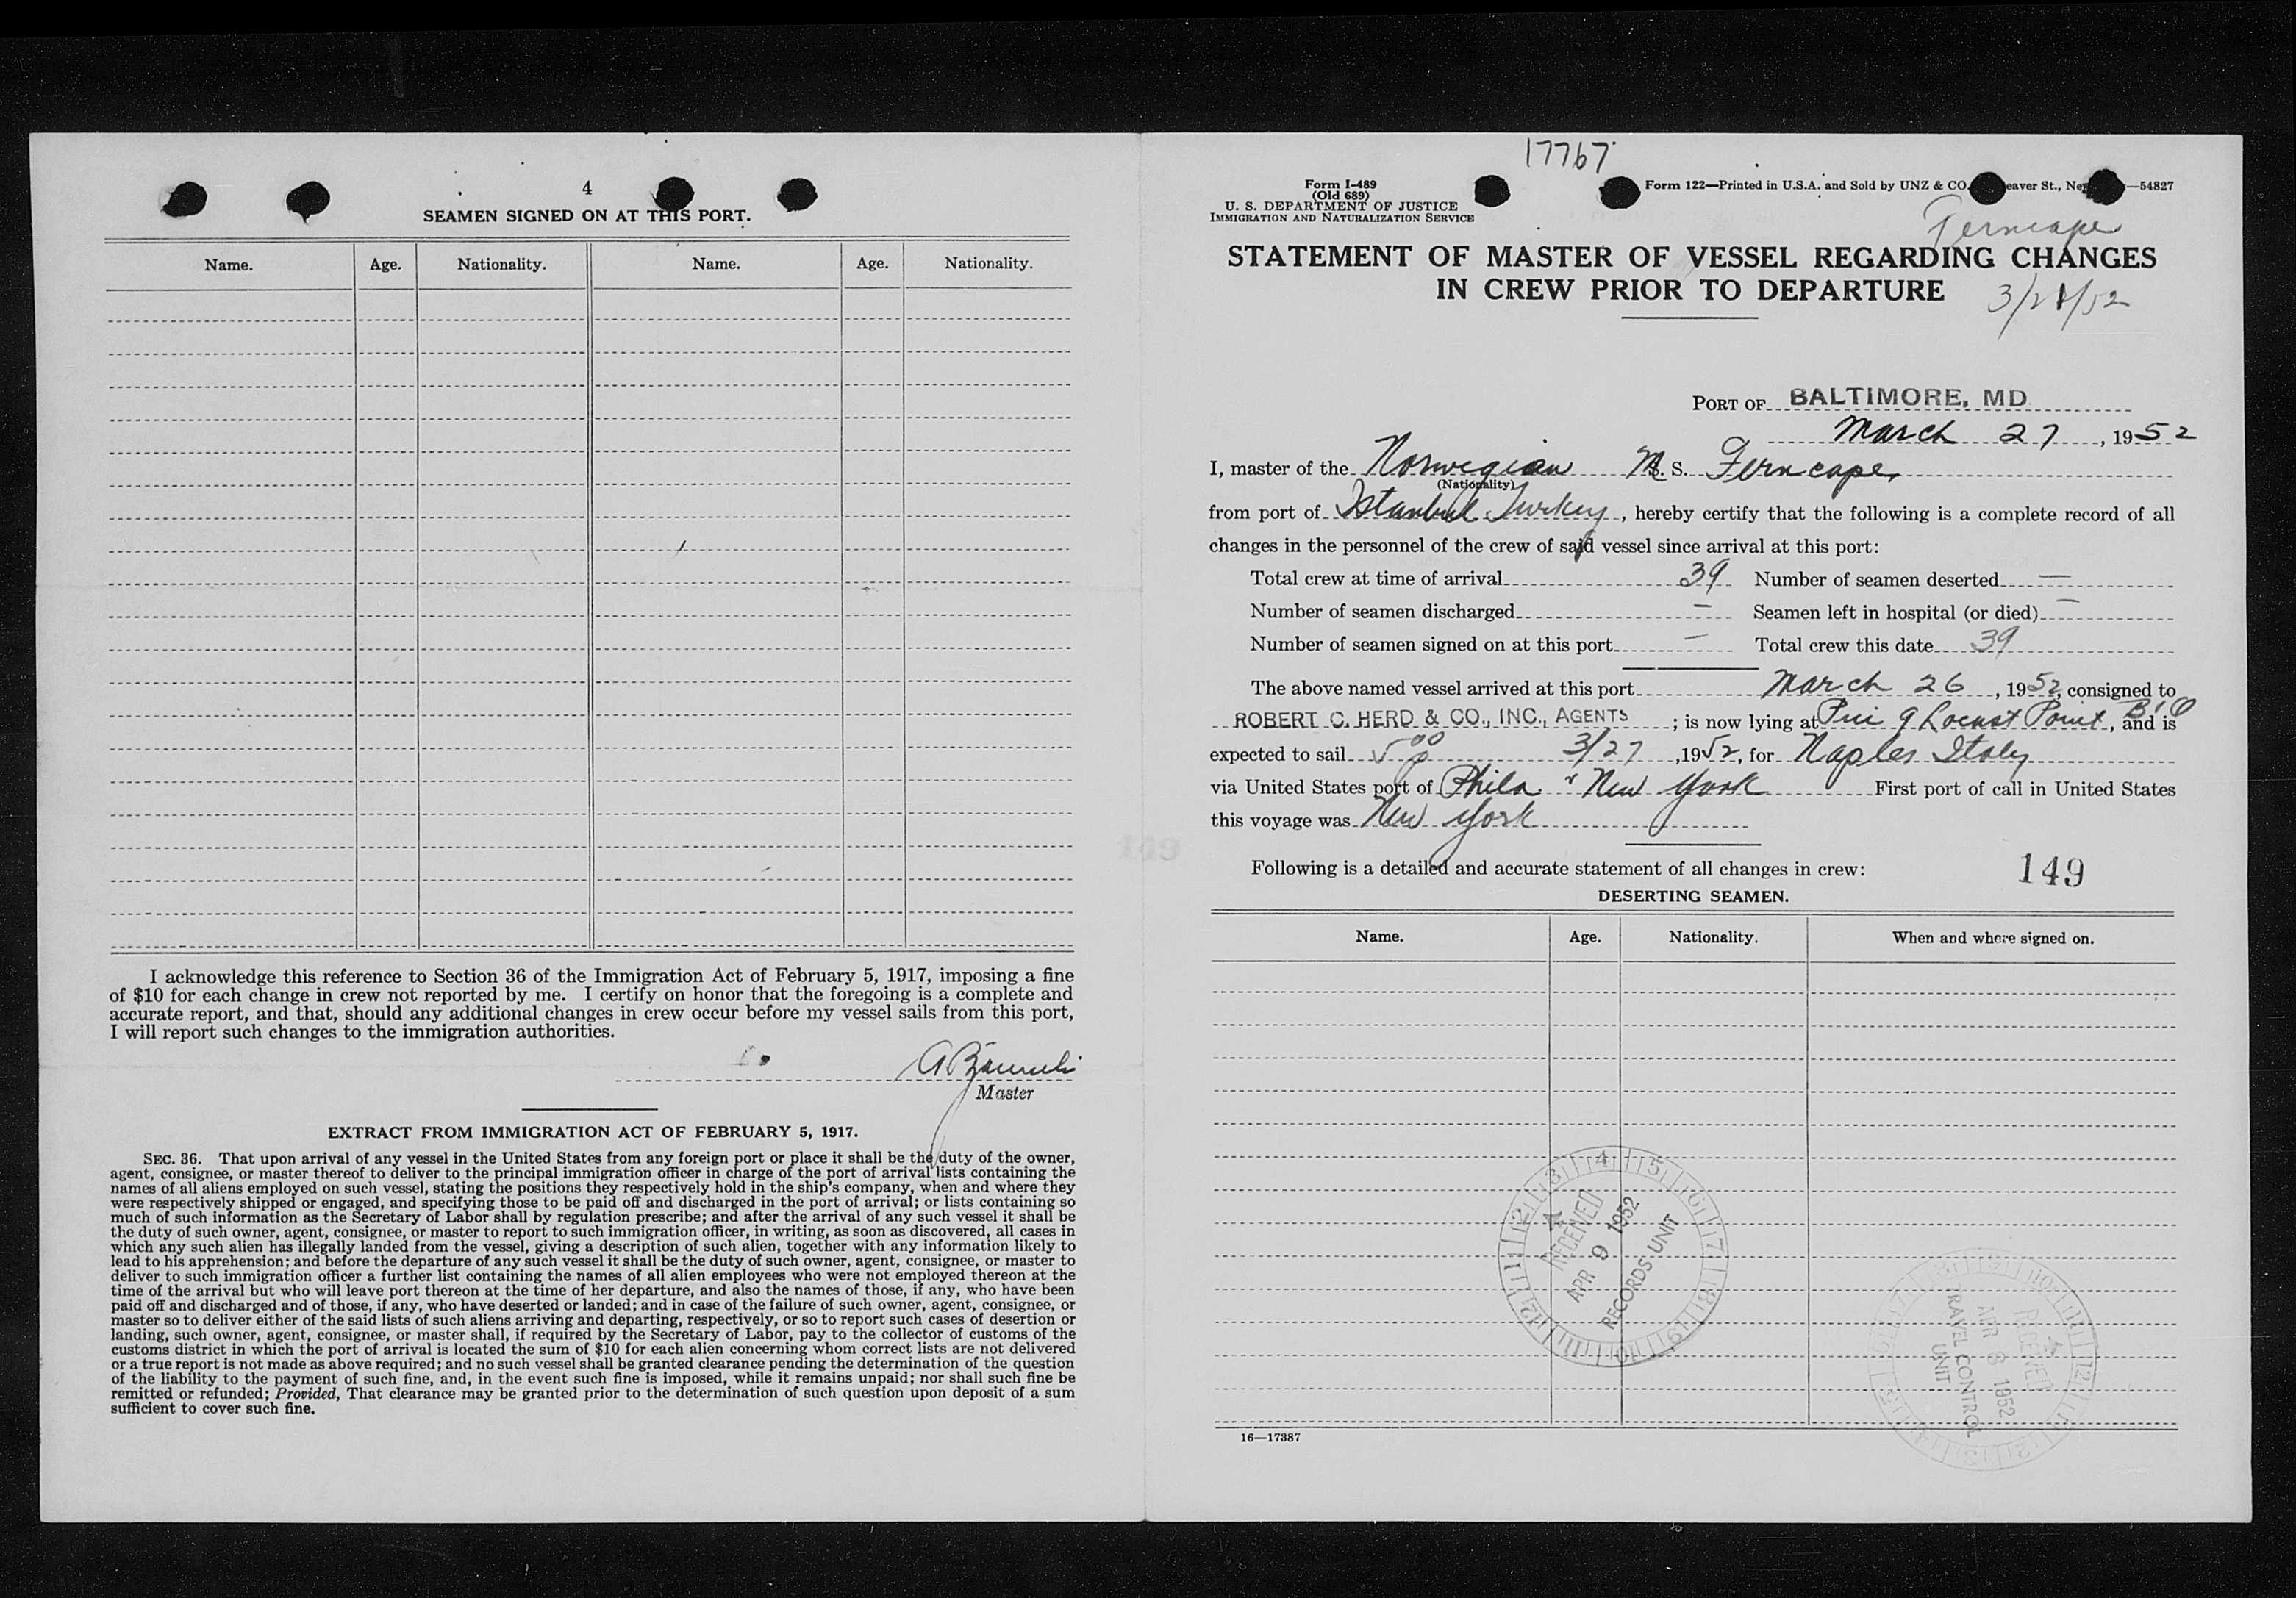 4
SEAMEN SIGNED ON AT THIS PORT.
Name. Age. Nationality. Name. Age. Nationality.
I acknowledge this reference to Section 36 of the Immigration Act of February 5, 1917, imposing a fine
of $10 for each change in crew not reported by me. I certify on honor that the foregoing is a complete and
accurate report, and that, should any additional changes in crew occur before my vessel sails from this port,
I will report such changes to the immigration authorities.
Master
EXTRACT FROM IMMIGRATION ACT OF FEBRUARY 5, 1917.
SEC. 36. That upon arrival of any vessel in the United States from any foreign port or place it shall be the duty of the owner,
agent, consignee, or master thereof to deliver to the principal immigration officer in charge of the port of arrival lists containing the
names of all aliens employed on such vessel, stating the positions they respectively hold in the ship's company, when and where they
were respectively shipped or engaged, and specifying those to be paid off and discharged in the port of arrival; or lists containing so
much of such information as the Secretary of Labor shall by regulation prescribe; and after the arrival of any such vessel it shall be
the duty of such owner, agent, consignee, or master to report to such immigration officer, in writing, as soon as discovered, all cases in
which any such alien has illegally landed from the vessel, giving a description of such alien, together with any information likely to
lead to his apprehension; and before the departure of any such vessel it shall be the duty of such owner, agent, consignee, or master to
deliver to such immigration officer a further list containing the names of all alien employees who were not employed thereon at the
time of the arrival but who will leave port thereon at the time of her departure, and also the names of those, if any, who have been
paid off and discharged and of those, if any, who have deserted or landed; and in case of the failure of such owner, agent, consignee, or
master so to deliver either of the said lists of such aliens arriving and departing, respectively, or so to report such cases of desertion or
landing, such owner, agent, consignee, or master shall, if required by the Secretary of Labor, pay to the collector of customs of the
customs district in which the port of arrival is located the sum of $10 for each alien concerning whom correct lists are not delivered
or a true report is not made as above required; and no such vessel shall be granted clearance pending the determination of the question
of the liability to the payment of such fine, and, in the event such fine is imposed, while it remains unpaid; nor shall such fine be
remitted or refunded; Provided, That clearance may be granted prior to the determination of such question upon deposit of a sum
sufficient to cover such fine.
17767
Form I-489
(Old 689)
U. S. DEPARTMENT OF JUSTICE
IMMIGRATION AND NATURALIZATION SERVICE
Form 122—Printed in U.S.A. and Sold by UNZ & CO. eaver St., Ne —54827
Ferncape
STATEMENT OF MASTER OF VESSEL REGARDING CHANGES
IN CREW PRIOR TO DEPARTURE
3/21/52
PORT OF BALTIMORE, MD
March 27, 1952
I, master of the Norwegian M. S. Ferncape,
(Nationality)
from port of Istanbul Turkey, hereby certify that the following is a complete record of all
changes in the personnel of the crew of said vessel since arrival at this port:
Total crew at time of arrival 39 Number of seamen deserted —
Number of seamen discharged — Seamen left in hospital (or died) —
Number of seamen signed on at this port — Total crew this date 39
The above named vessel arrived at this port March 26, 1952, consigned to
ROBERT C. HERD & CO., INC., AGENTS; is now lying at Pier 9 Locust Point, B&O and is
expected to sail 5 00 P 3/27, 1952, for Naples Italy
via United States port of Phila & New York First port of call in United States
this voyage was New York
Following is a detailed and accurate statement of all changes in crew:
149
DESERTING SEAMEN.
Name. Age. Nationality. When and where signed on.
RECEIVED
APR 9 1952
RECORDS UNIT
RECEIVED
APR 8 1952
TRAVEL CONTROL
UNIT
16—17387